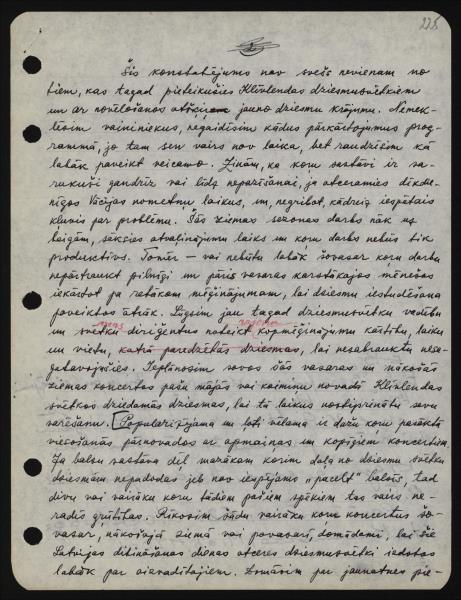 225
3
Šis konstatējums nav svešs nevienam no
tiem, kas tagad pieteikušies Klīvlendas dziesmusvētkiem
un ar novēlošanos atšķir jauno dziesmu krājumu. Nemek-
lēsim vaininiekus, negaidīsim kādus pārkārtojumus prog-
rammā, jo tam sen vairs nav laika, bet raudzīsim kā
labāk paveikt veicamo. Zinām, ka koru sastāvi ir sa-
rukuši gandrīz vai līdz nepazīšanai, ja atceramies dīkdie-
nīgos Vācijas nometņu laikus, un, negribot, kādreiz iespētais
kļuvis par problēmu. Šās ziemas sezonas darbs nāk uz
beigām, sāksies atvaļinājumu laiks un koru darbs nebūs tik
produktīvs. Tomēr — vai nebūtu labāk šovasar koru darbu
nepārtraukt pilnīgi un pāris vasaras karstākajos mēnešos
iekārtot pa retākam mēģinājumam, lai dziesmu iestudēšana
paveiktos ātrāk. Lūgsim jau tagad dziesmusvētku vadību
un svētku diriģentus noteikt kopmēģinājumu kārtību, laiku
un vietu, katrā paredzētās dziesmas, lai nesabrauktu nesa-
gatavojušies. Ieplānosim savos šās vasaras un nākošās
ziemas koncertos pašu mājās vai kaimiņu novadā Klīvlendas
svētkos dziedamās dziesmas, lai tā laikus nostiprinātu savu
varēšanu. Popularizējama un ļoti vēlama ir dažu koru pasāktā
viesošanās pārnovados ar apmaiņas un kopīgiem koncertiem.
Ja balsu sastāva dēļ mazākam korim daļa no dziesmu svētku
dziesmām nepadodas jeb nav iespējams „pacelt" balsīs, tad
divu vai vairāku koru tādiem pašiem spēkiem tas vairs ne-
radīs grūtības. Rīkosim šādu vairāku koru koncertus šo-
vasar, nākošajā ziemā vai pavasarī, domādami, lai šie
Latvijas dibināšanas dienas atceres dziesmusvētki izdotos
labāk par aizvadītajiem. Domāsim par jaunatnes pie-